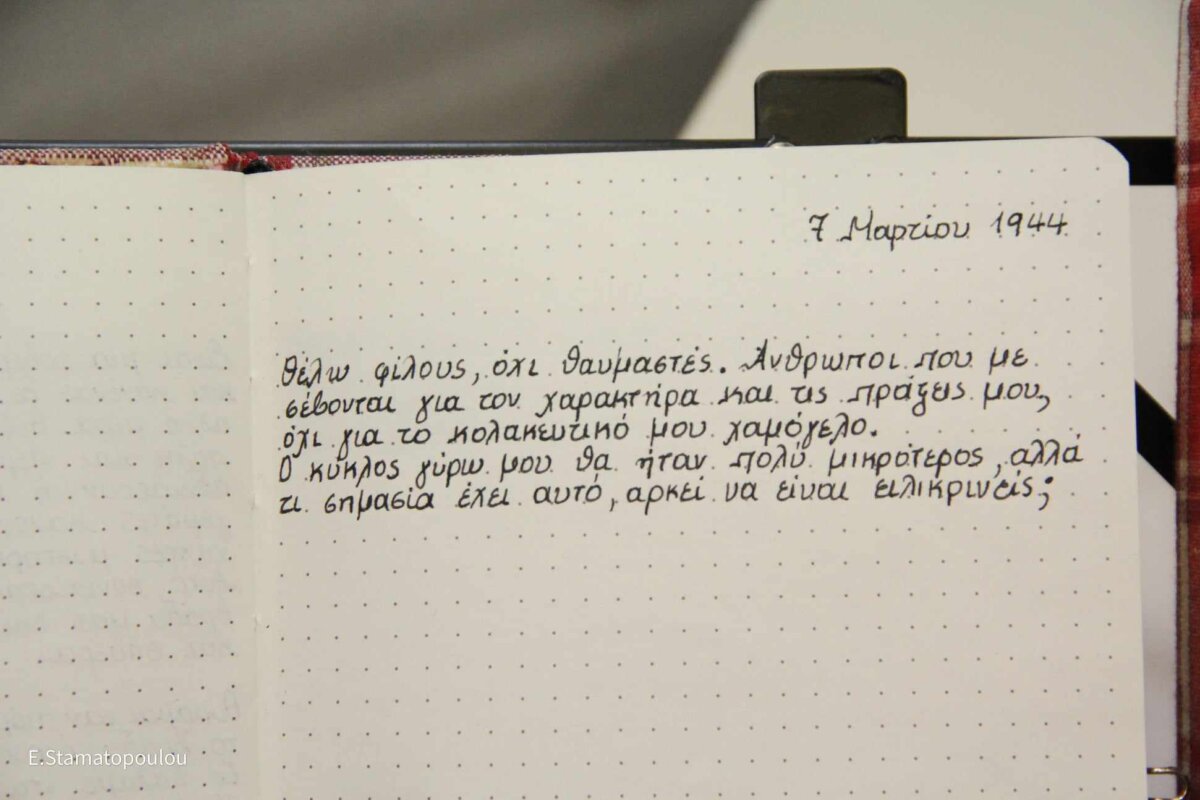 7 Μαρτίου 1944
Θέλω φίλους, όχι θαυμαστές. Άνθρωποι που με
σέβονται για τον χαρακτήρα και τις πράξεις μου,
όχι για το κολακευτικό μου χαμόγελο.
Ο κύκλος γύρω μου θα ήταν πολύ μικρότερος, αλλά
τι σημασία έχει αυτό, αρκεί να είναι ειλικρινείς;
E.Stamatopoulou